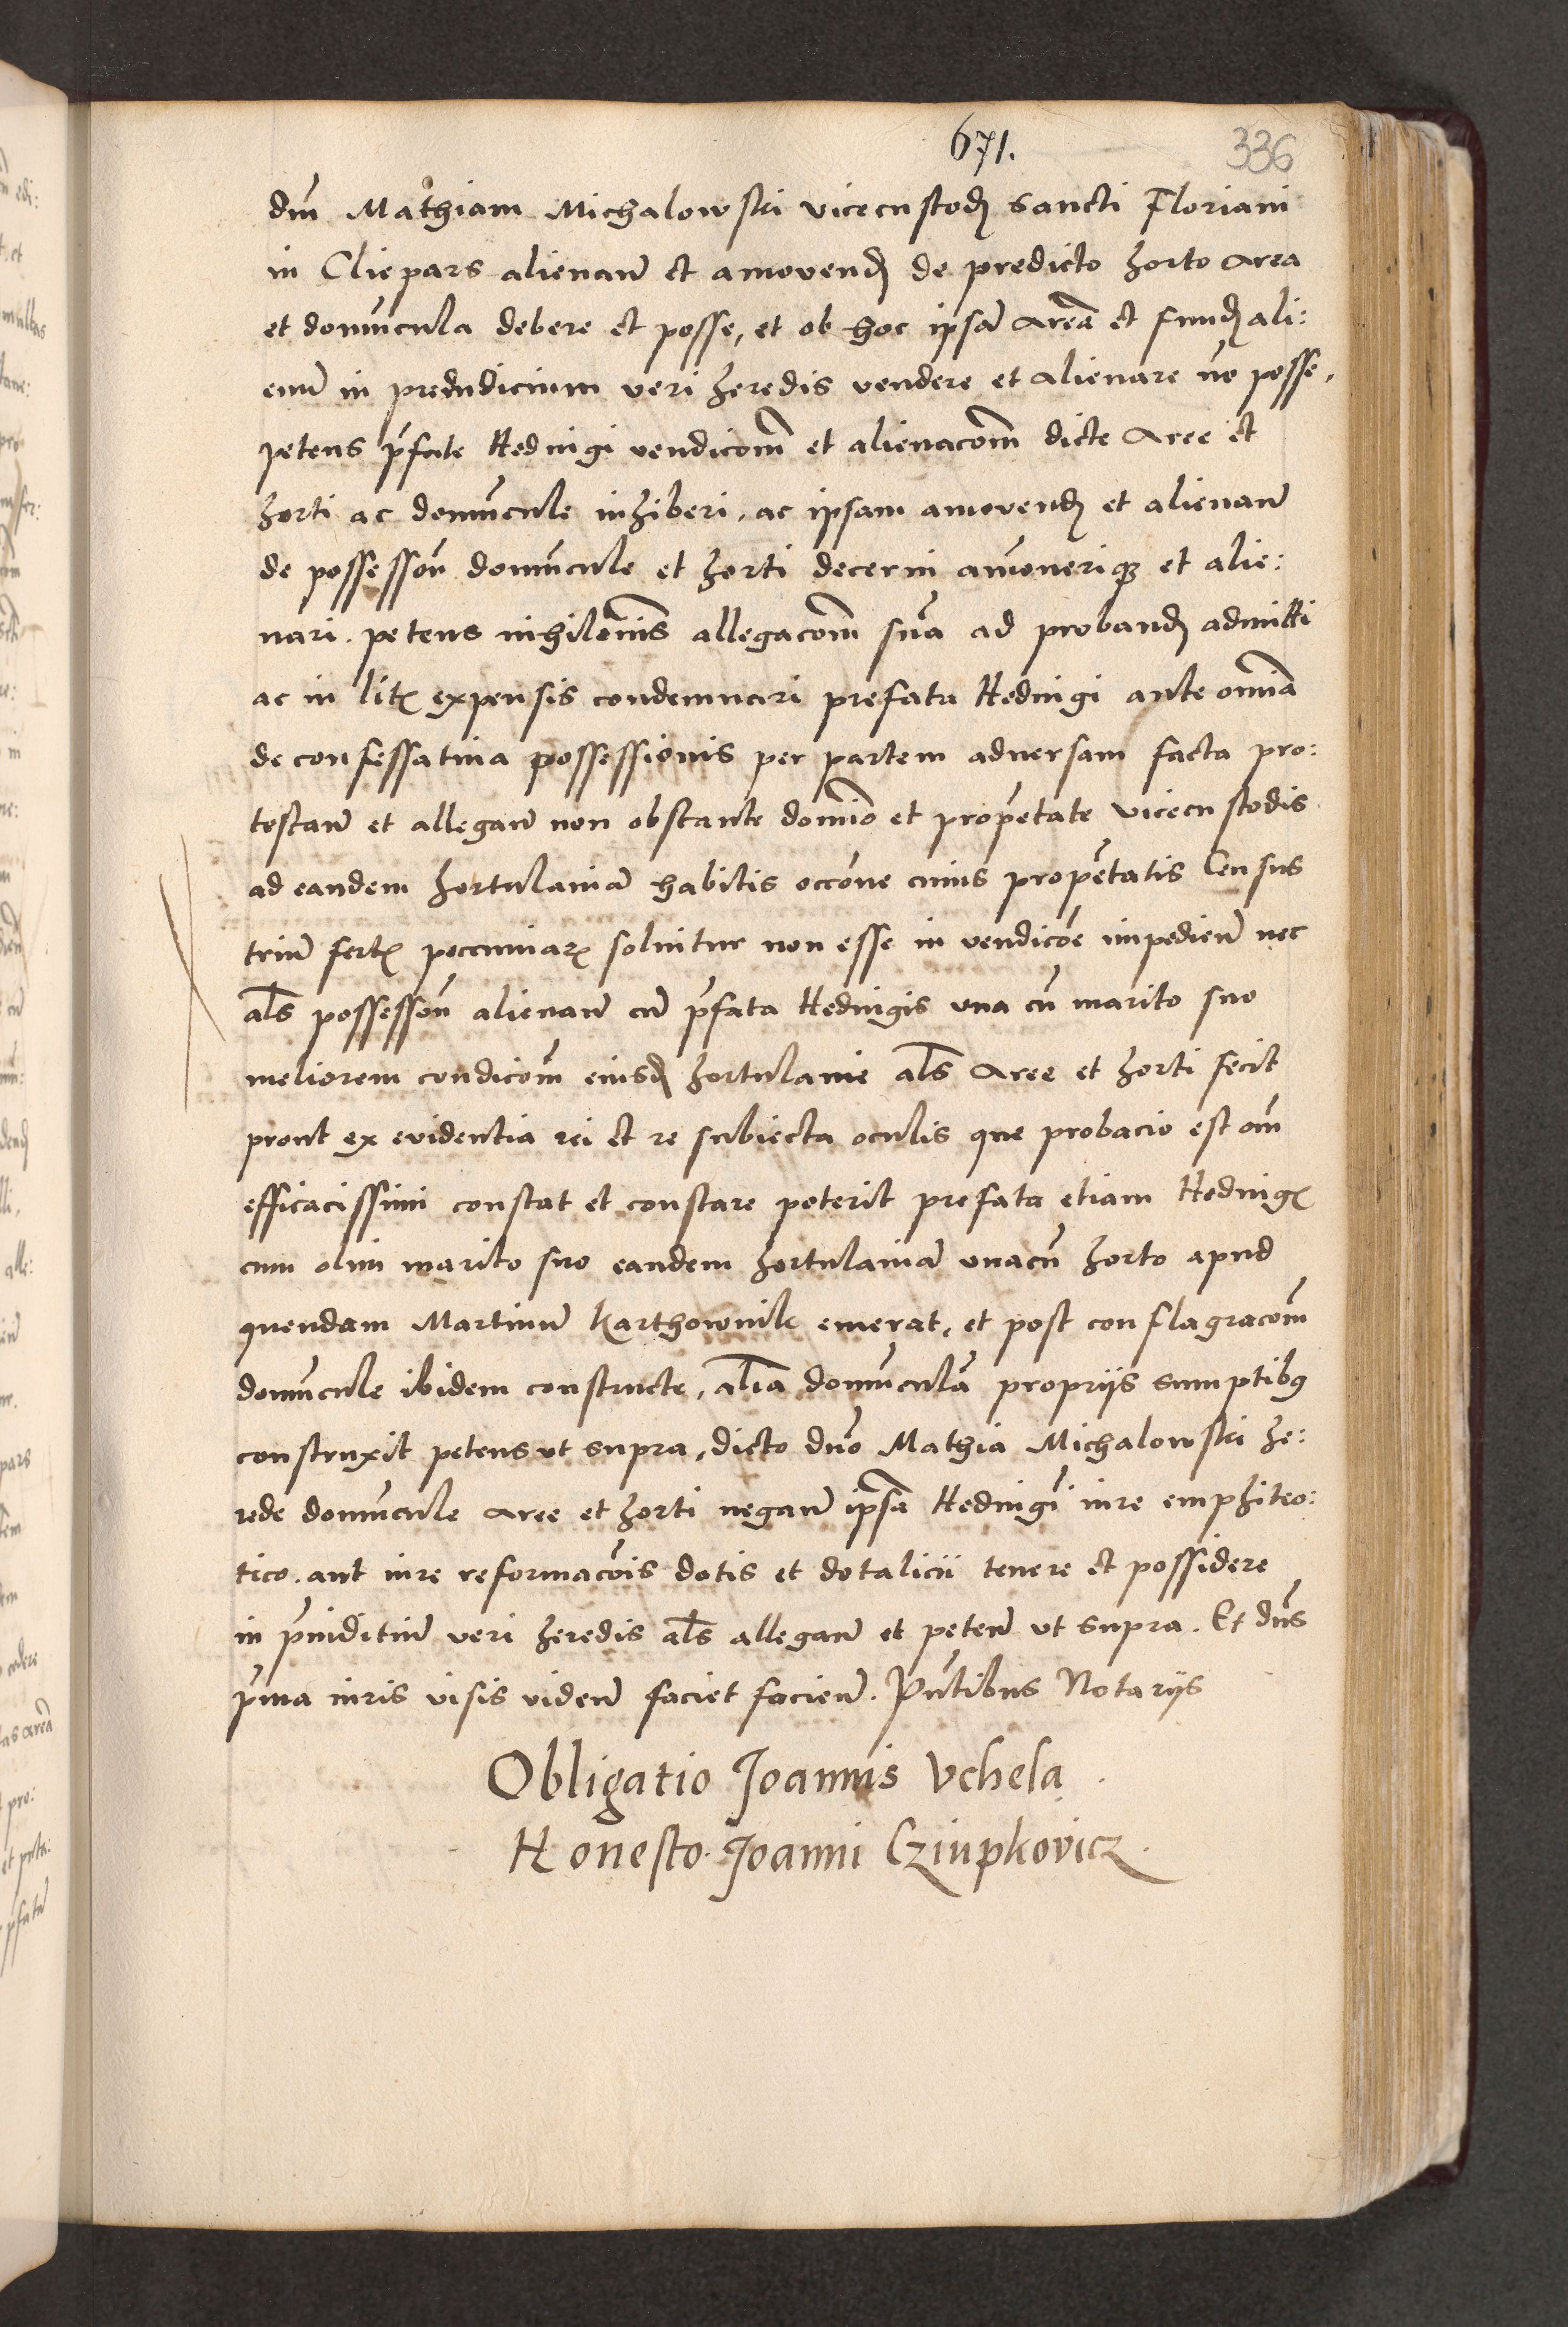 671.
336
dnm̄ Mathiam Michalowski vicecustodē Sancti Floriani
in Cliepars alienan̄ et amovend̄ de predicto horto area
et domūcula debere et posse, et ob hoc ipsā areā et fund̄ ali:
enū in preiudicium veri heredis vendere et alienare nō posse,
petens p̄fate Hedvigi vendicōm et alienacōm dicte aree et
horti ac domūcule inhiberi, ac ipsam amovend̄ et alienan̄
de possessōn domūcule et horti decerni amōveriq3 et alie:
nari. petens nihilom̄nis allegacōm suā ad proband̄ admitti
ac in lit expensis condemnari prefata Hedvigi ante omniā
de confessativa possessionis per partem adversam facta pro:
testan̄ et allegan̄ non obstante domīo et prop̄etate vicecustodis
ad eandem hortulaniā habitis occōne cuius prop̄etatis Census
triū fert pecuniar solvitur non esse in vendicōe impedien̄ nec
al̄s possessōn alienan̄ cū p̄fata Hedvigis una cū marito suo
meliorem condicōm eiusd̄ hortulanie al̄s aree et horti fecit
prout ex evidentia rei et re subiecta oculis que probacio est om̄
efficacissimi constat et constare poterit prefata etiam Hedvig
cum olim marito suo eandem hortulaniā unacū horto apud
quendam Martinū Karthownik emerat, et post conflagracōm
domūcule ibidem constructe, aliā domūculā proprijs sumptib9
construxit petens ut supra, dicto dn̄o Mathia Michalowski he:
rede domūcule aree et horti negan̄ ipsā Hedvigī iure emphiteo:
tico. aut iure reformacōis dotis et dotalicii tenere et possidere
in p̄iuditiū veri heredis al̄s allegan̄ et peten̄ ut supra. Et dn̄s
p̄ma iuris visis viden̄ faciet facien̄. Pn̄tibus Notarijs
Obligatio Joannis Vchela
Honesto Joanni Cziupkovicz